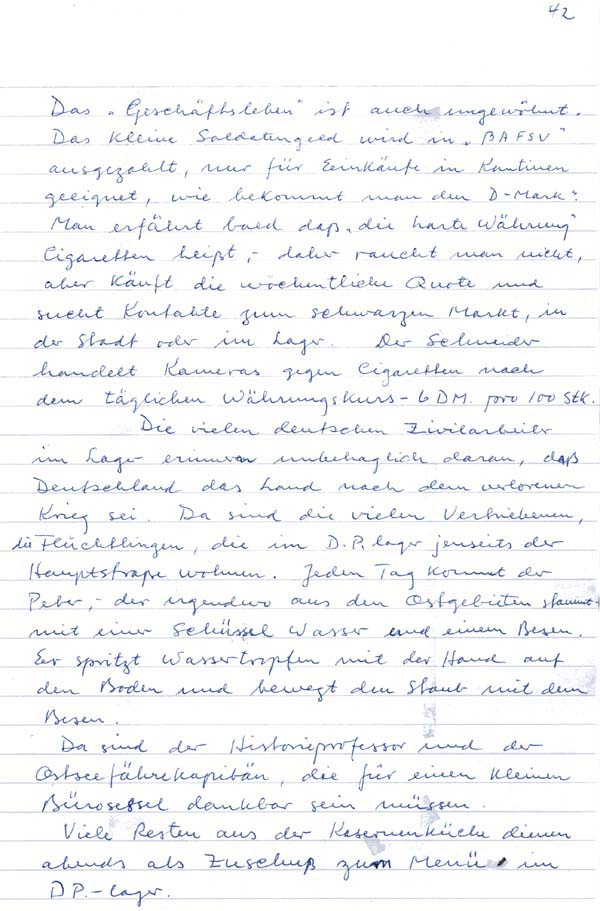 42
Das „Geschäftsleben" ist auch ungewöhnt.
Das kleine Soldatengeld wird in „BAFSV"
ausgezahlt, nur für Eeinkäufe in Kantinen
geeignet, wie bekommt man den D-Mark".
Man erfährt bald daß „die harte Währung"
Cigaretten heißt, – daher raucht man nicht,
aber käuft die wöchentliche Quote und
sucht Kontakte zum schwarzen Markt, in
der Stadt oder im Lager. Der Schneider
handelt Kameras gegen Cigaretten nach
dem täglichen Währungskurs – 6 DM. pro 100 Stk.
Die vielen deutschen Zivilarbeiter
im Lager erinnern unbehaglich daran, daß
Deutschland das Land nach dem verlorenen
Krieg sei. Da sind die vielen Vertriebenen,
die Flüchtlingen, die im D.P. lager jenseits der
Hauptstraße wohnen. Jeden Tag kommt der
Peter, – der irgendwo aus den Ostgebieten stammt –
mit einer Schüssel Wasser und einem Besen.
Er spritzt Wassertropfen mit der Hand auf
den Boden und bewegt den Staub mit dem
Besen.
Da sind der Historieprofessor und der
Ostseefährekapitän, die für einen kleinen
Bürosessel dankbar sein müssen.
Viele Resten aus der Kasernenküche dienen
abends als Zuschuß zum Menü im
DP.-lager.